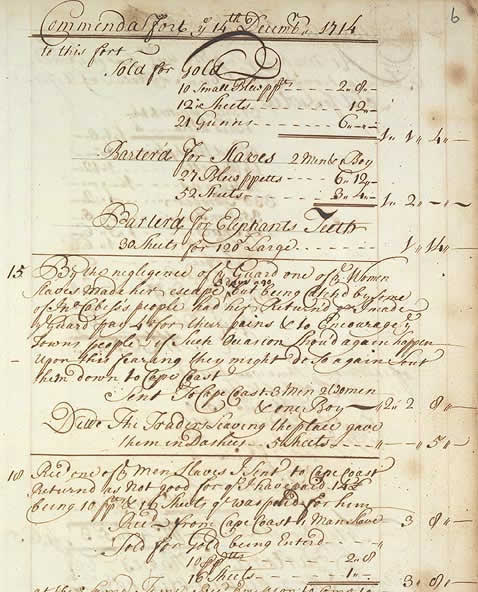 6
Commenda fort ye 14th Decembr. 1714
to this fort
Sold for Gold
10 Small Blew 2 .. 8 ..
12 Sheets 12 ..
21 Gunns 6 .. - .. 1 .. 1 .. 4 .. -
Barter'd for Slaves 2 Men & Boy
27 Blew ppetts 6 .. 12 ..
52 Sheets 3 .. 4 .. 1 .. 2 .. - .. -
Barter'd for Elephants Teeth
30 Sheets for 120 Large 1 .. 14 .. -
15 By the negligence of ye Guard one of ye Women
Slaves made her escape but being by some
of Jno Cabess's people had her Return'd I made
ye Guard pay for their pains & to Encourage ye
Towns people if such Quasion Should again happen
Upon their fearing they might do so again Sent
them down to Cape Coast
Sent To Cape Coast 3 Men 2 Women
& one Boy 2 8 -
Ditto The Traders leaving the place gave
them in Dashees 5 Sheets 5 -
18 Recd one of ye Men Slaves I Sent to Cape Coast
Returnd as not good for I have paid
being 10 & 16 Sheets yt was paid for him
Recd from Cape Coast 1 Man Slave 3 8 -
Sold for Gold being Enterd
10 2 .. 8
16 Sheets 1 .. - 3 .. 08 .. -
at the Same Time